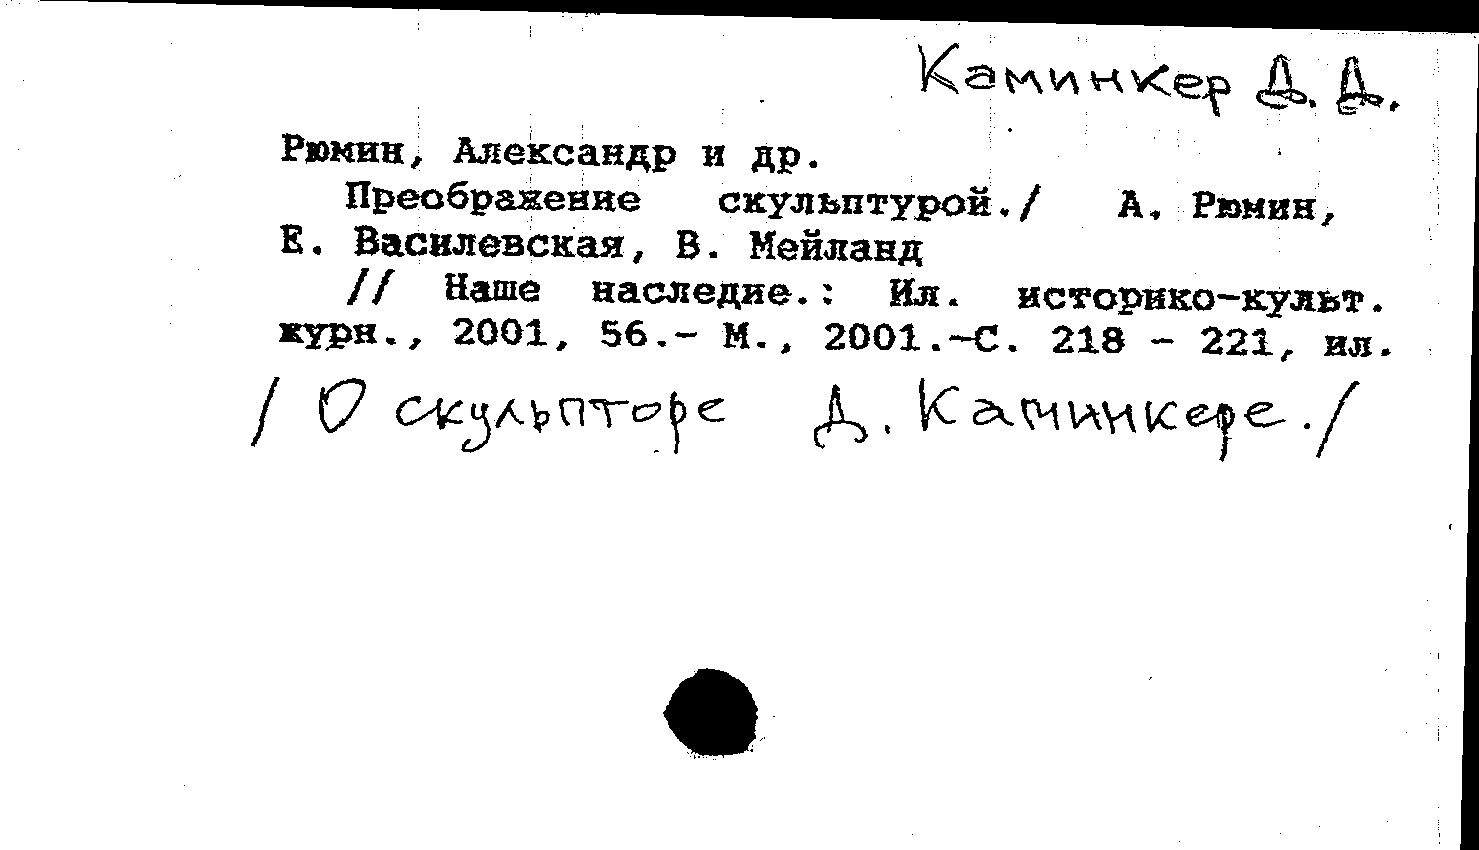 Каминкер Д. Д.
Рюмин, Александр и др.
Преображение скульптурой./ А. Рюмин,
Е. Василевская, В. Мейланд
// Наше наследие.: Ил. историко-культ.
журн., 2001, 56.- М., 2001.-С. 218 - 221, ил.
/ О скульпторе Д. Каминкере./